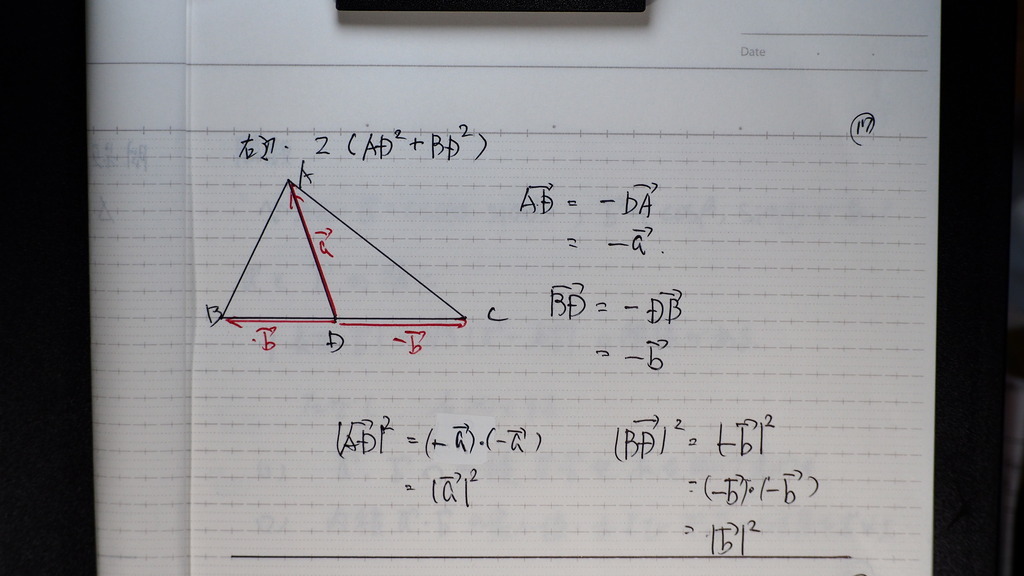 Date
⑰
右辺. 2 (AD² + BD²)
A
a⃗
B
C
b⃗
D
-b⃗
AD⃗ = -DA⃗
= -a⃗.
BD⃗ = -DB⃗
= -b⃗
|AD⃗|² = (-a⃗)·(-a⃗)
= |a⃗|²
|BD⃗|² = |-b⃗|²
= (-b⃗)·(-b⃗)
= |b⃗|²